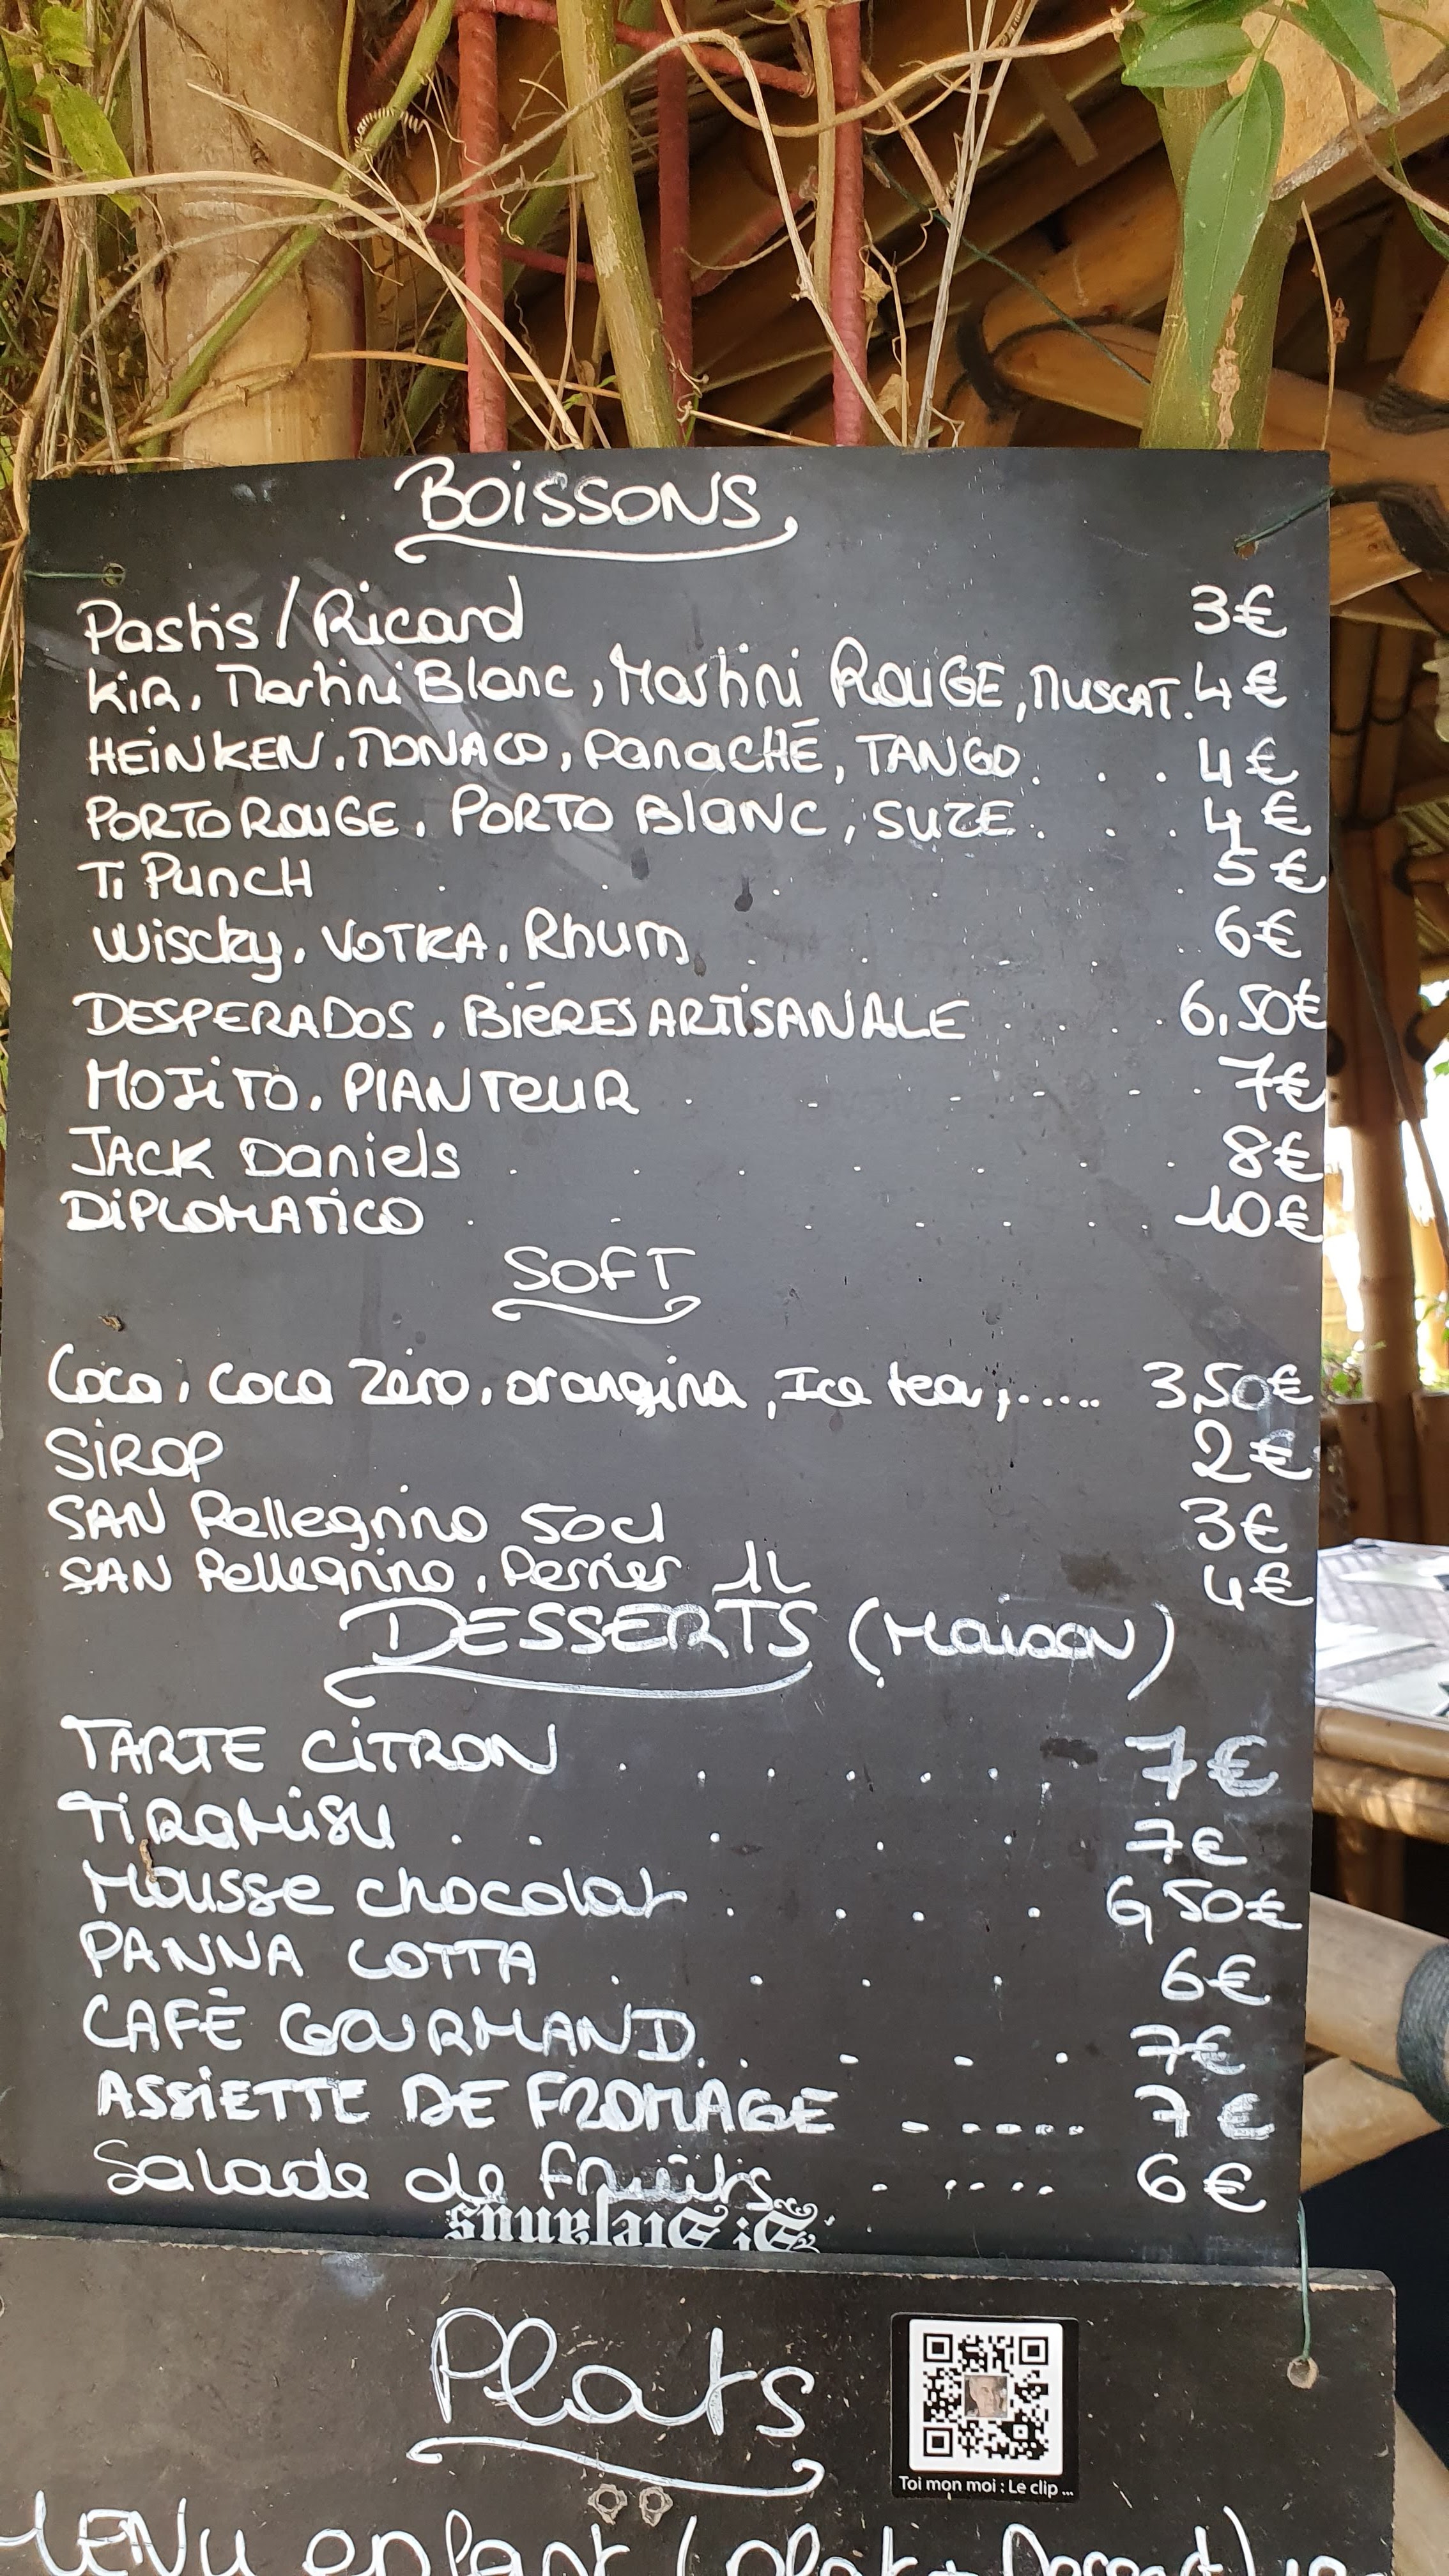 BOISSONS
Pastis / Ricard 3€
Kir, Martini Blanc, Martini ROUGE, MUSCAT. 4€
HEINKEN, MONACO, PanaCHÉ, TANGO. . . . 4€
PORTO ROUGE, PORTO BlANC, SUZE. . . . 4€
Ti PunCH . . . . . . 5€
Wiscky, VOTKA, Rhum . . . . . 6€
DESPERADOS, BiéRES ARTISANALE . . . . 6,50€
MOJITO, PlANTEUR . . . . . . 7€
JACK Daniels . . . . . . . 8€
DIPLOMATICO . . . . . . . 10€
SOFT
Coca, Coca Zéro, orangina, Ice tea,..... 3,50€
SIROP 2€
SAN Pellegrino 50cl 3€
SAN Pellegrino, Perrier 1L 4€
DESSERTS (Maison)
TARTE CITRON . . . . . . . 7€
TiRaMiSu . . . . . 7€
Mousse chocolat . . . . 6,50€
PANNA COTTA . . . . 6€
CAFÉ GOURMAND. . . . . 7€
ASSIETTE DE FROMAGE - - - - - 7€
Salade de Fruits. . . . . . 6€
Di Stefanus
Plats
Toi mon moi : Le clip ...
MENU enfant (plat + Dessert)